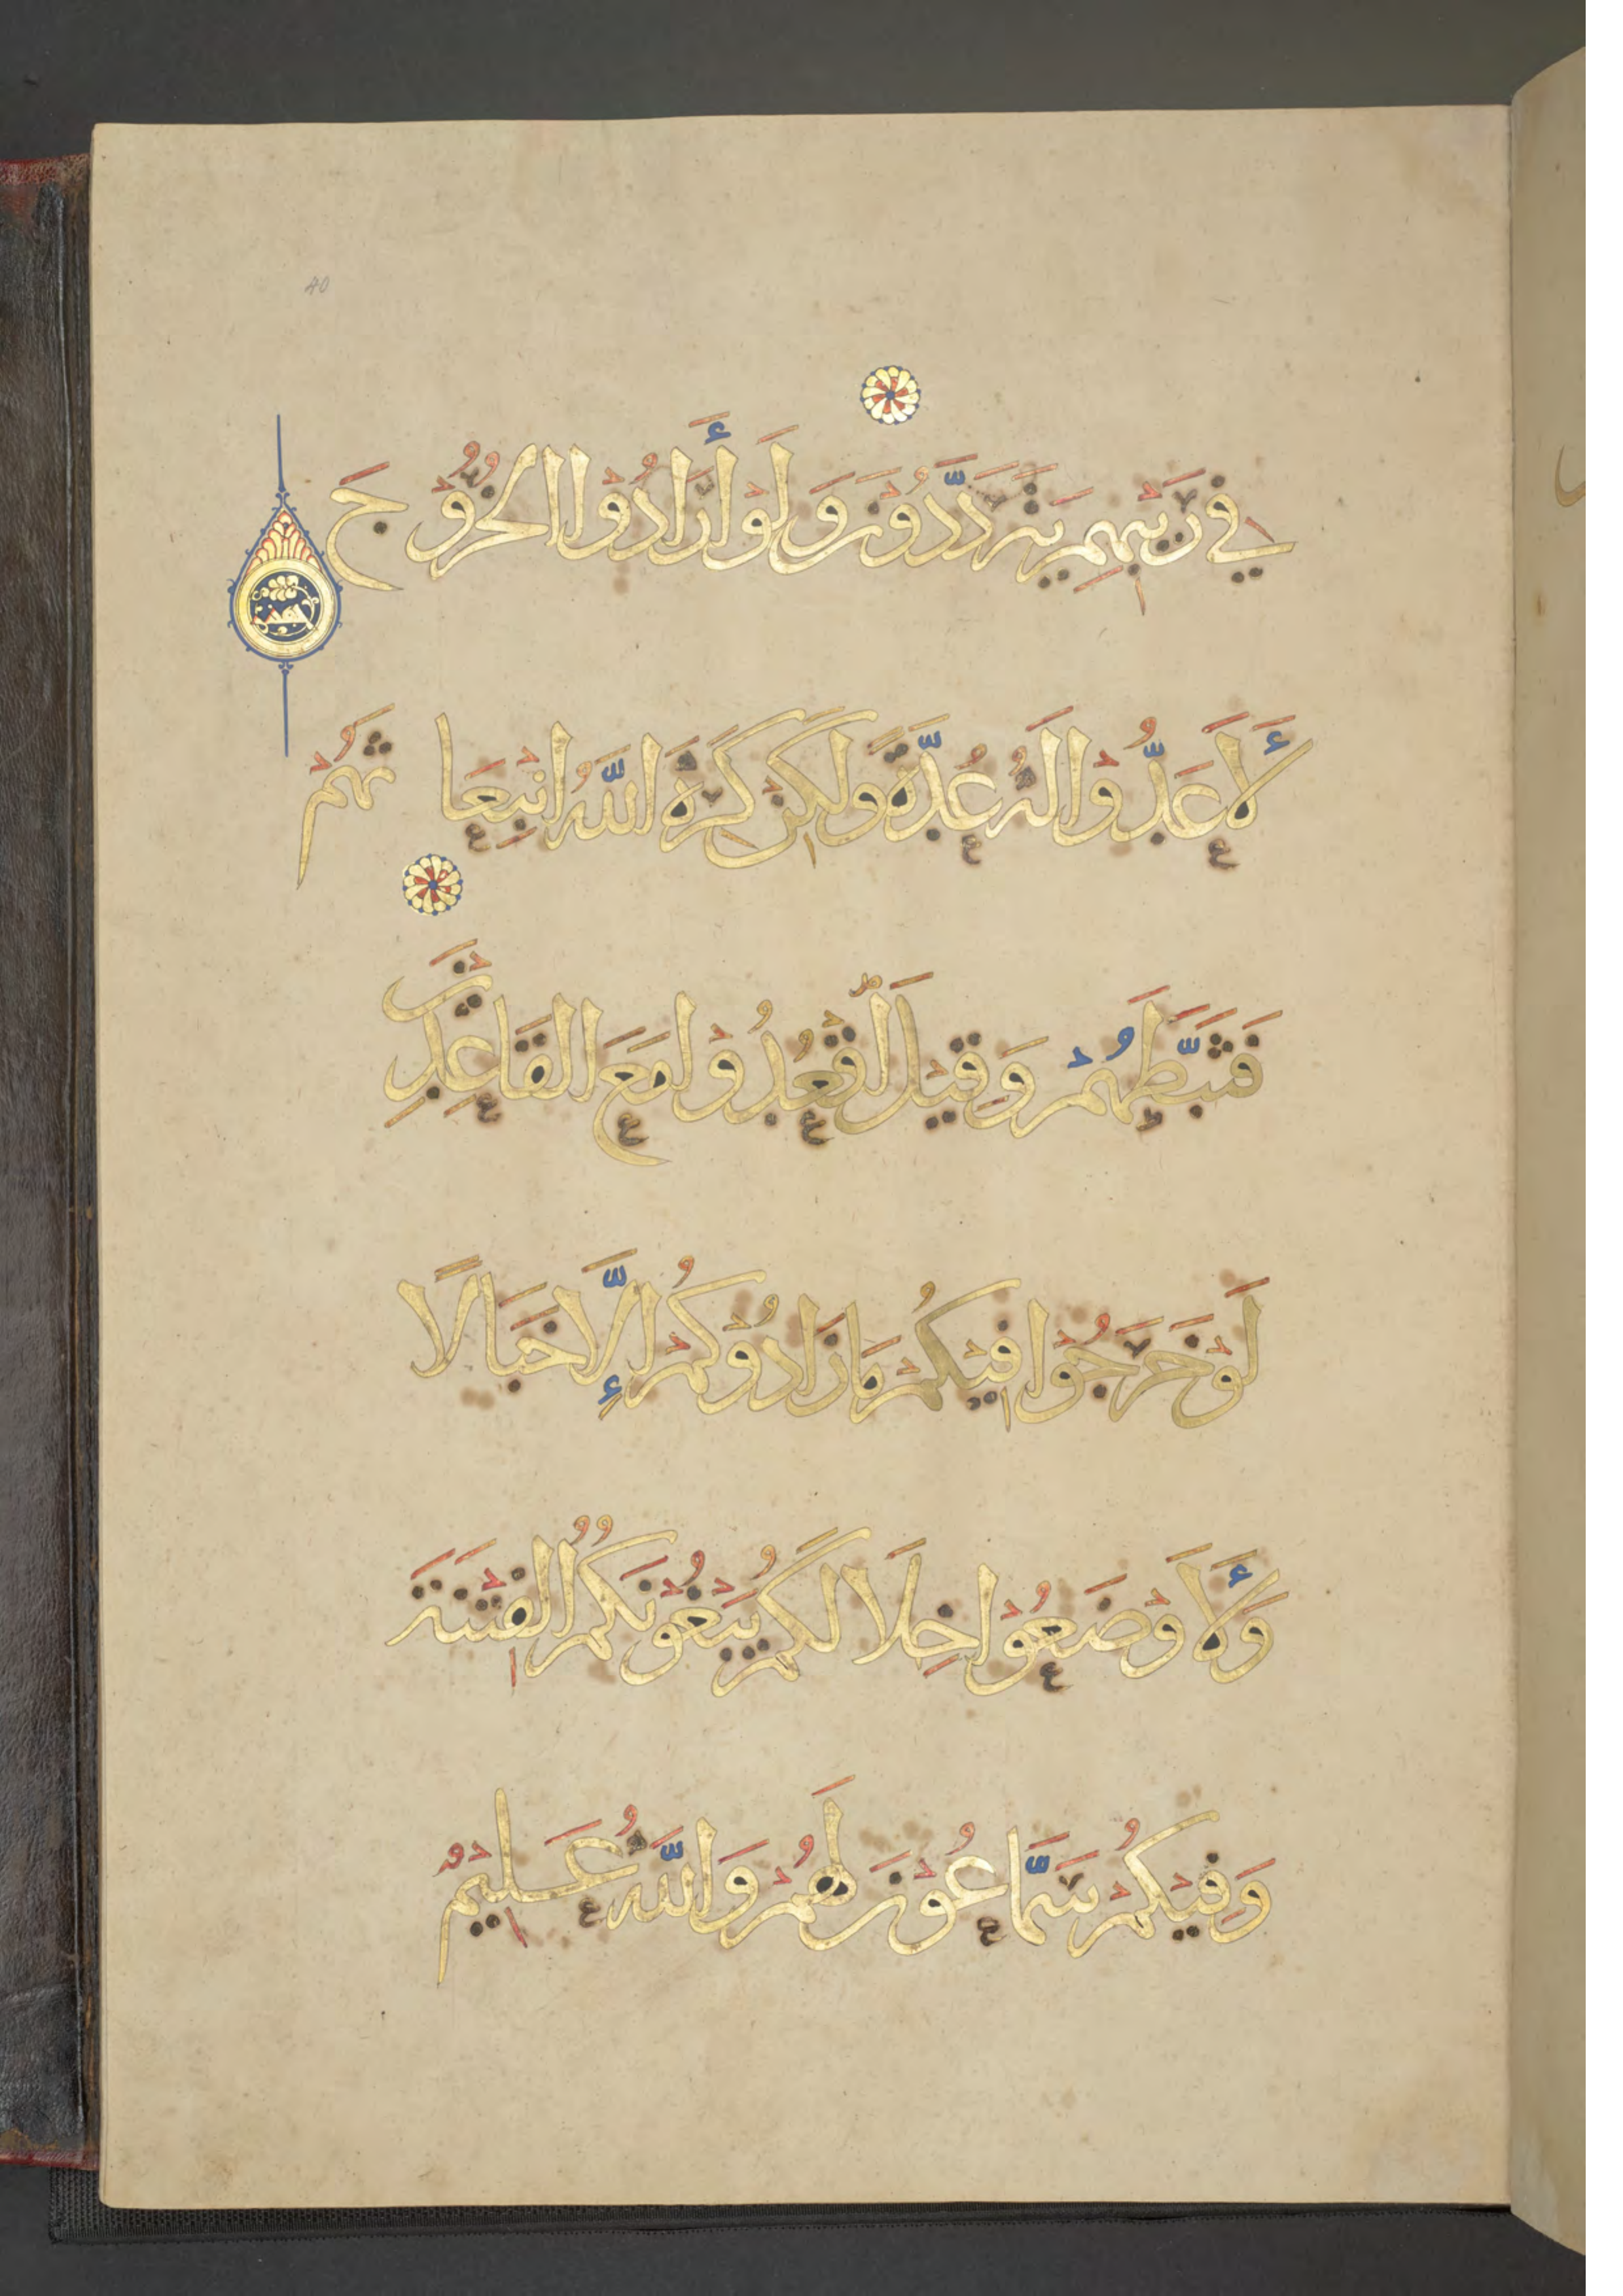 40
فِي رَيْبِهِمْ يَتَرَدَّدُونَ وَلَوْ أَرَادُوا الْخُرُوجَ
لَأَعَدُّوا لَهُ عُدَّةً وَلَكِنْ كَرِهَ اللَّهُ انْبِعَاثَهُمْ
فَثَبَّطَهُمْ وَقِيلَ اقْعُدُوا مَعَ الْقَاعِدِينَ
لَوْ خَرَجُوا فِيكُمْ مَا زَادُوكُمْ إِلَّا خَبَالًا
وَلَأَوْضَعُوا خِلَالَكُمْ يَبْغُونَكُمُ الْفِتْنَةَ
وَفِيكُمْ سَمَّاعُونَ لَهُمْ وَاللَّهُ عَلِيمٌ